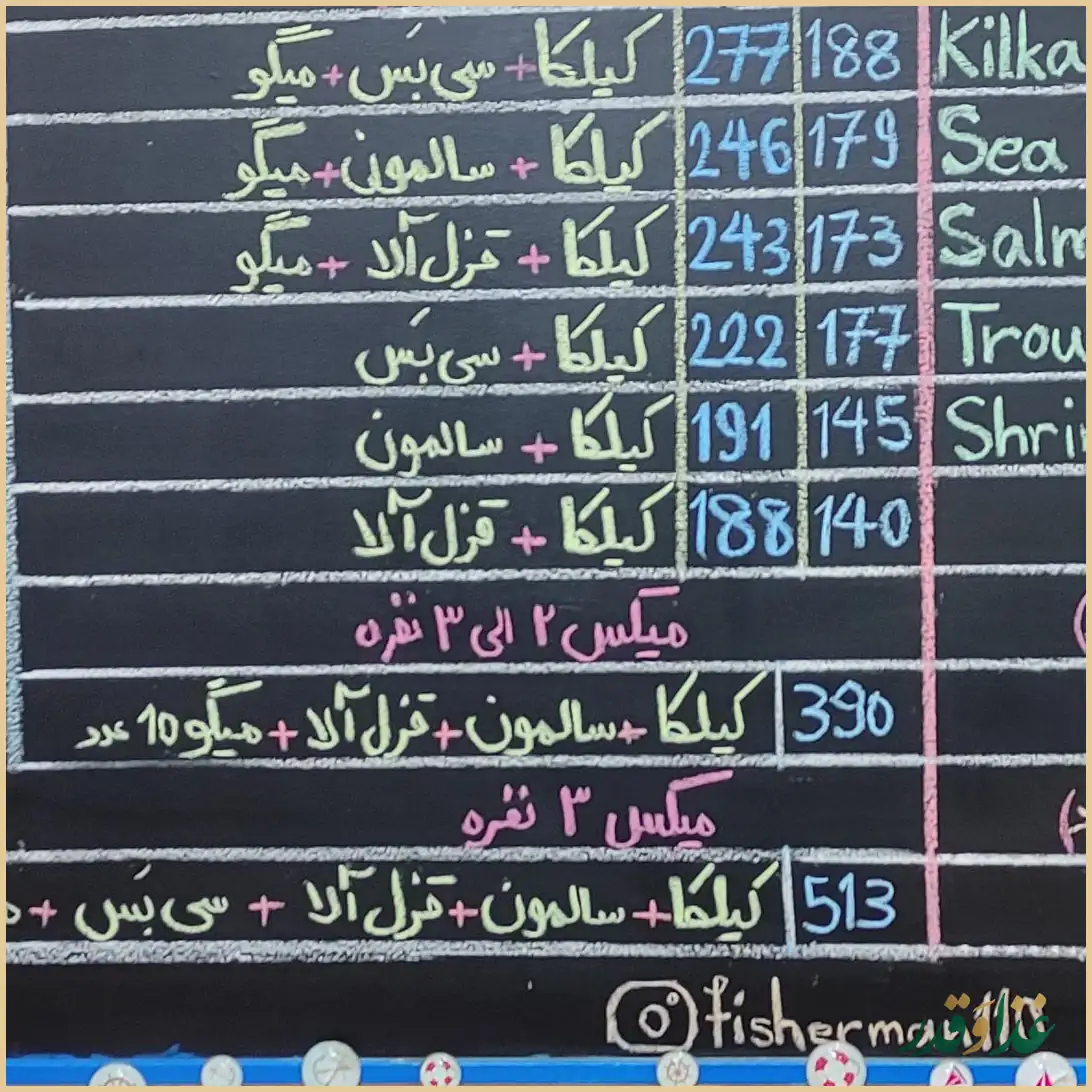 Kilka 188 277 کیلکا + سی بَس + میگو
Sea 179 246 کیلکا + سالمون + میگو
Salm 173 243 کیلکا + قزل آلا + میگو
Trou 177 222 کیلکا + سی بَس
Shri 145 191 کیلکا + سالمون
140 188 کیلکا + قزل آلا
میکس ۲ الی ۳ نفره
390 کیلکا + سالمون + قزل آلا + میگو 10 عدد
میکس ۳ نفره
513 کیلکا + سالمون + قزل آلا + سی بَس +
fisherman
غذا و قدر